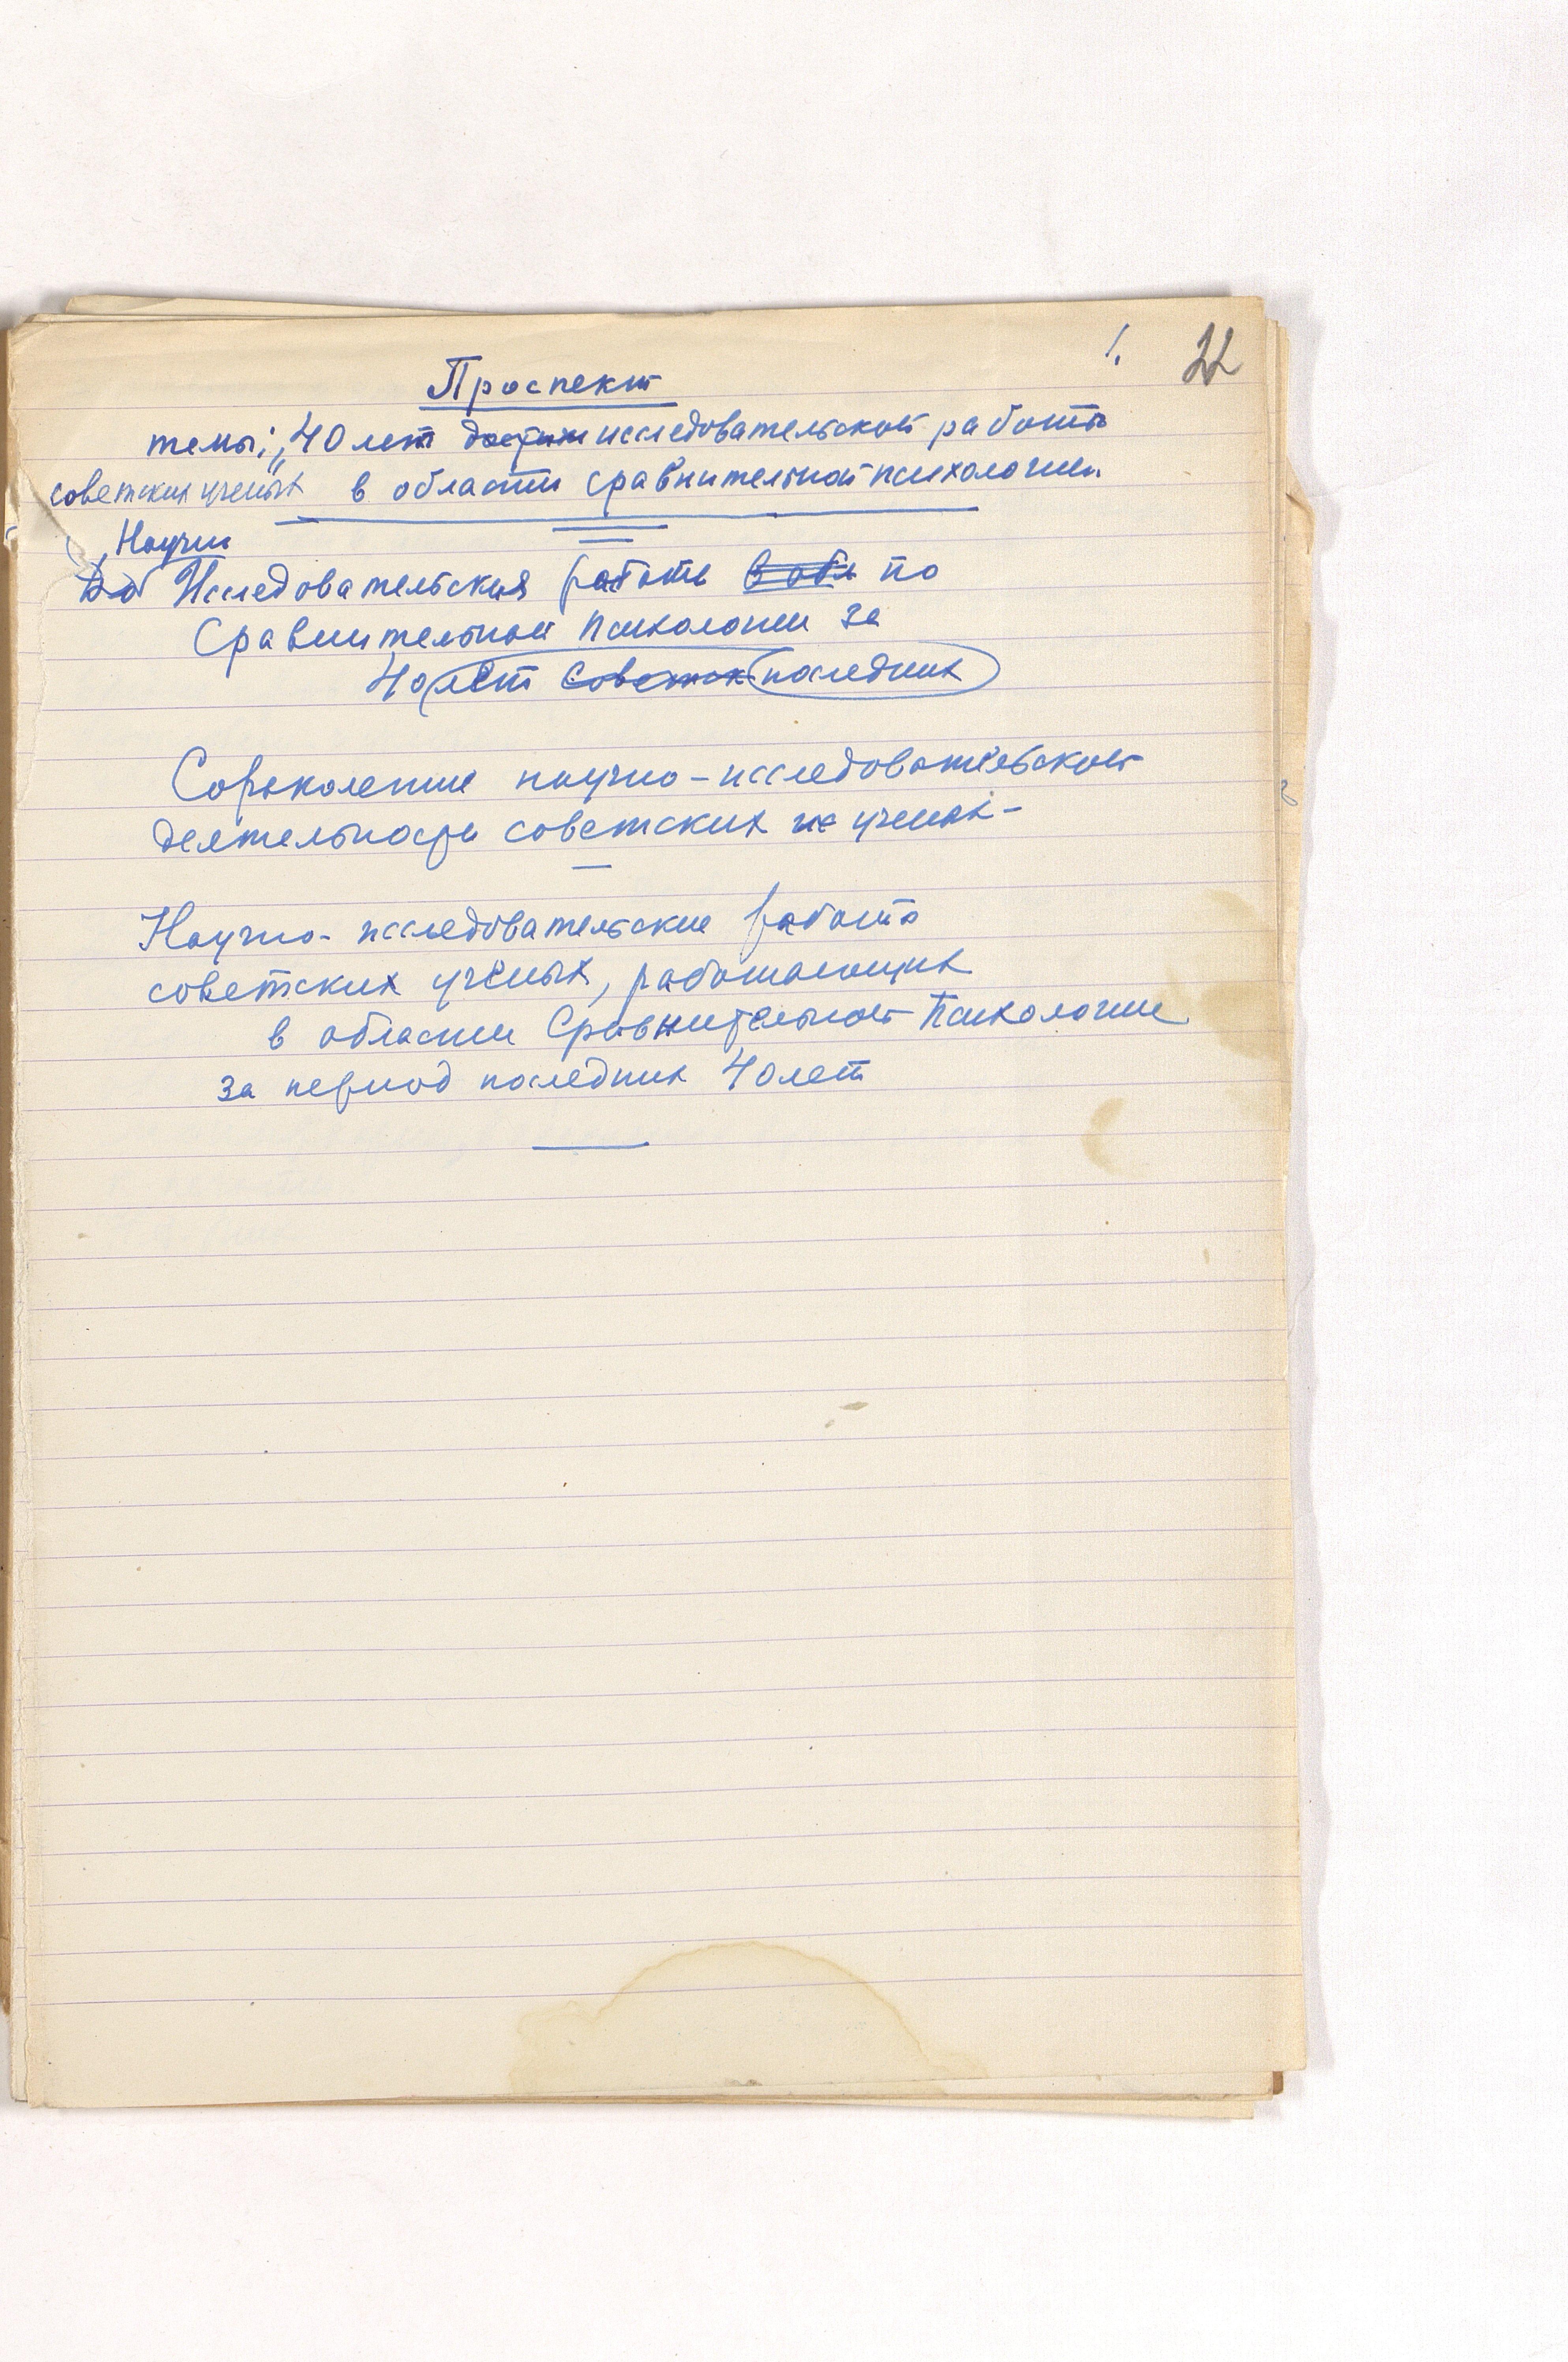 1. 22
Проспект
темы: „40 лет достиж исследовательской работы
советских ученых в области сравнительной психологии.
Научн
Исследовательския работы в обл по
Сравнительной Психологии за
40 лет советск последних
Сороколетие научно-исследовательской
деятельности советских ис ученых-
Научно-исследовательские работы
советских учёных, работающих
в области Сравнительной Психологии
за период последних 40 лет